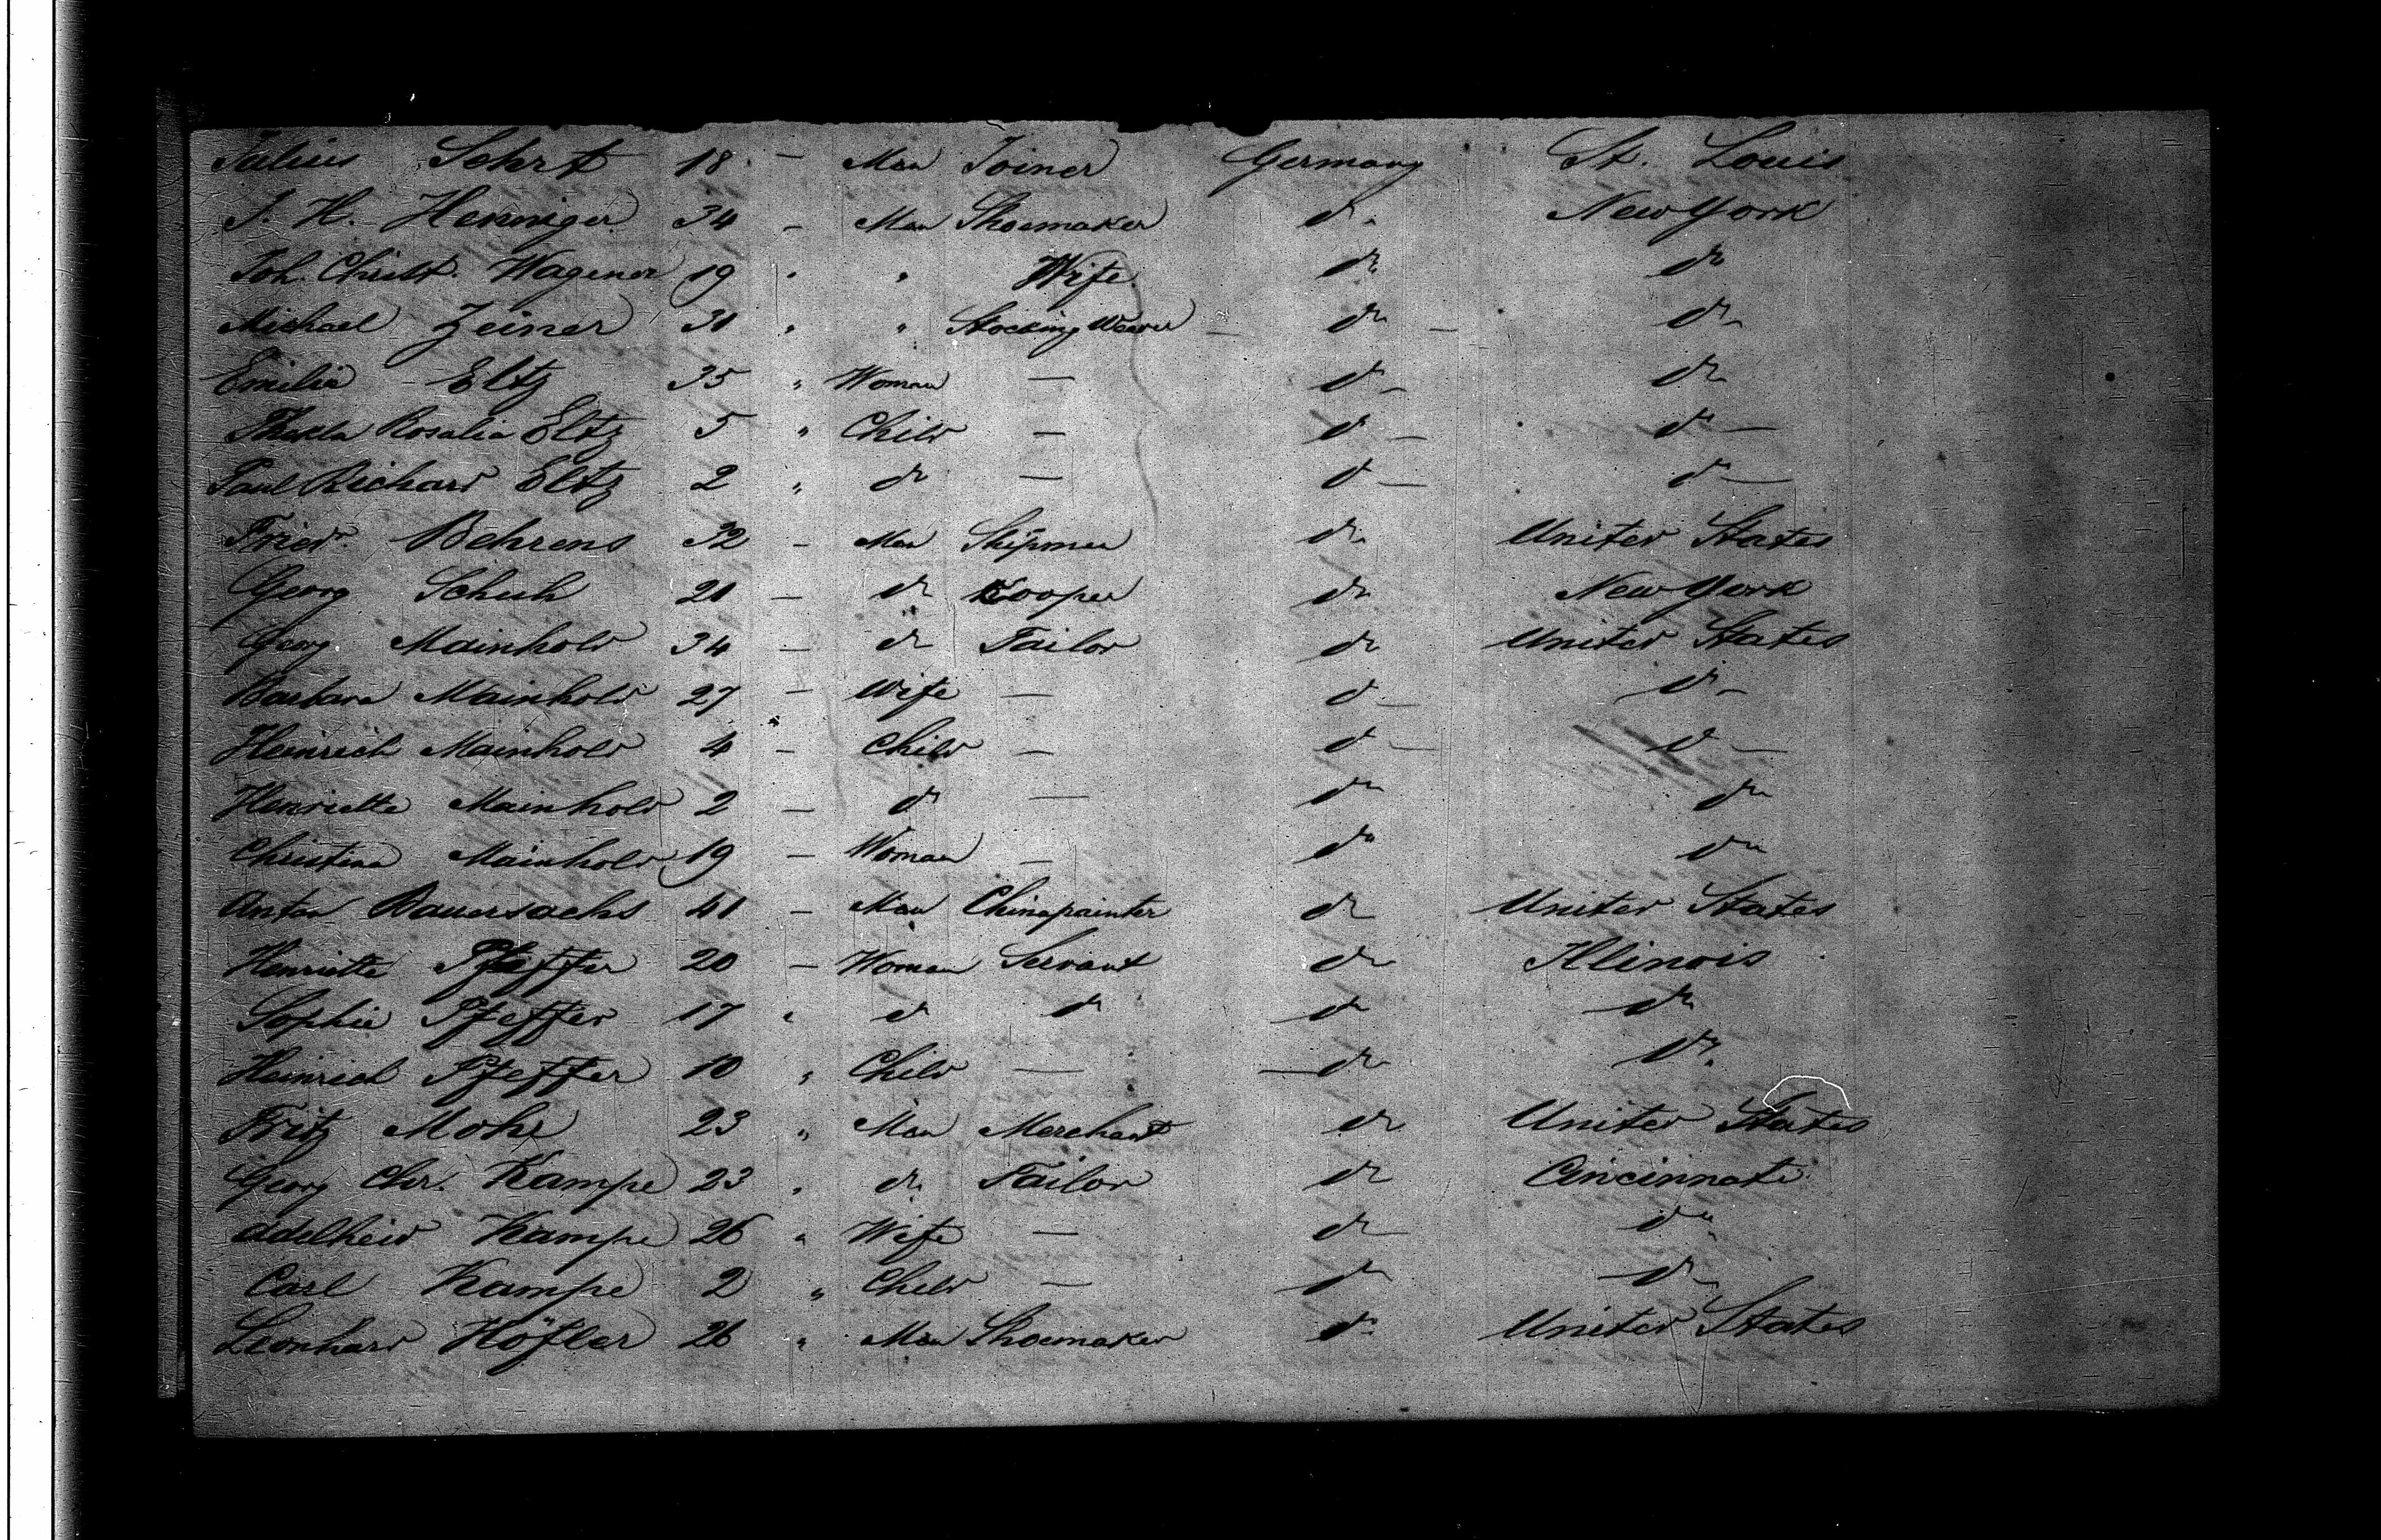 Julius Sehrt 18 - Man Joiner Germany St. Louis
J. H. Henniger 34 - Man Shoemaker do New York
Joh. Christ. Wagener 19 " " Wife do do
Michael Zeiner 31 " " Stocking Weaver - do - do
Emilie Eltz 35 " Woman - do do
Thekla Rosalia Eltz 5 " Child - do do
Paul Richard Eltz 2 " do - do do
Friedr. Behrens 32 - Man Shipman do United States
Georg Schuh 21 - do Kooper do New York
Georg Mainhold 34 - do Tailor do United States
Barbara Mainhold 27 - Wife - do do
Heinrich Mainhold 4 - Child - do do
Henriette Mainhold 2 - do - do do
Christina Mainhold 19 - Woman - do do
Anton Bauersachs 41 - Man Chinapainter do United States
Henriette Pfeffer 20 - Woman Servant do Illinois
Sophie Pfeffer 17 " do do do do
Heinrich Pfeffer 10 " Child - do do
Fritz Mohr 23 " Man Merchant do United States
Georg Chr. Kampe 23 " do Tailor do Cincinnati
Adelheid Kampe 26 " Wife - do do
Carl Kampe 2 " Child - do do
Leonhard Höfler 26 " Man Shoemaker do United States